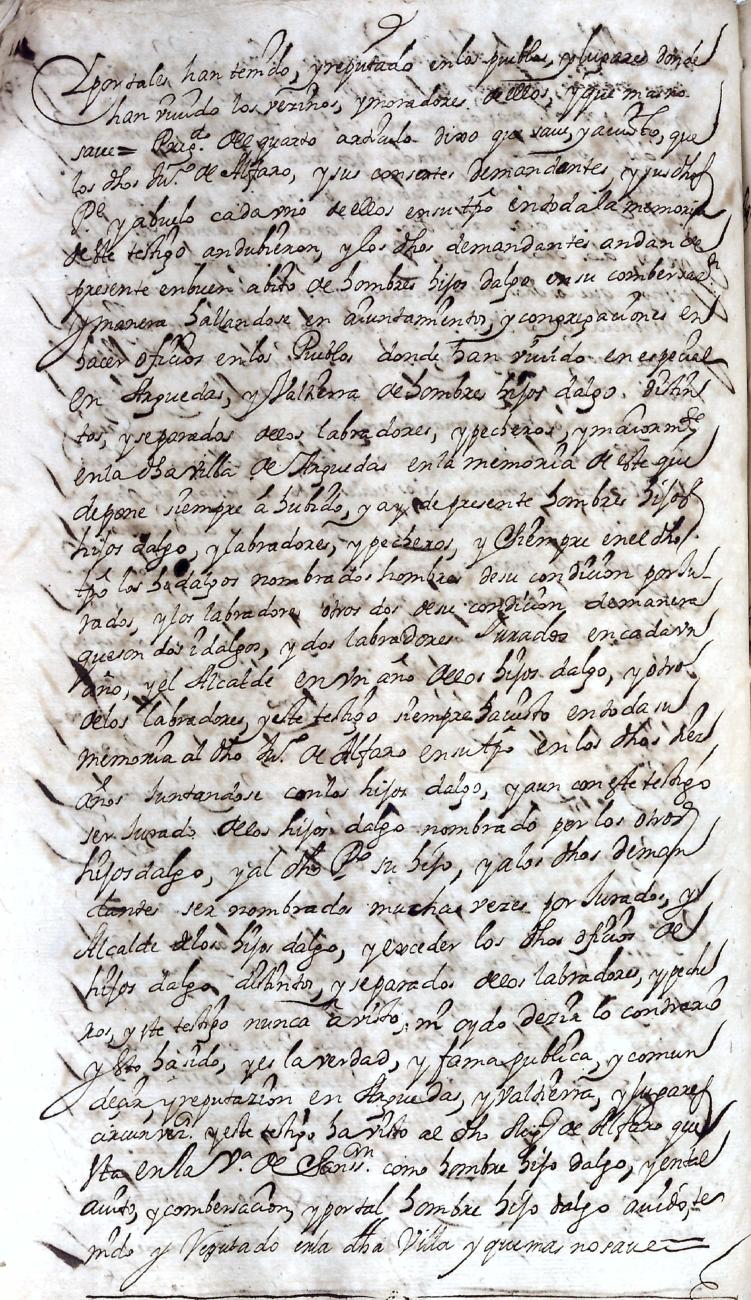 y por tales han tenido, y reputado en los pueblos, y lugares donde
han viuido los vezinos, y moradores de ellos, y que mas no
saue = Preg.do del quarto articulo dixo que saue, y a visto, que
los dhos Ju.º de Alfaro, y sus consortes demandantes, y sus dhos
P.e y abuelo cada vno de ellos en su tpō en toda la memoria
de este testigo andubieron, y los dhos demandantes andan de
presente en buen abito de hombres hijos dalgo en su combersaz.on
y manera hallandose en aiuntamiento, y congregaciones en
hacer oficios en los Pueblos donde han viuido en especial
en Arguedas, y Valtierra de hombres hijos dalgo distin
tos, y separados de los labradores, y pecheros, y maiorm.te
en la dha villa de Arguedas en la memoria de este que
depone siempre á hubido, y ay de presente hombres hijos
hijos dalgo, y labradores, y pecheros, y Chiempre en el dho
tpō los hidalgos nombrados hombres de su condicion por Ju-
rados, y los labradores otros dos de su condicion de manera
que son dos idalgos, y dos labradores Jurados en cada vn
año, y el Alcalde en vn año de los hijos dalgo, y otro
de los labradores, y este testigo siempre ha visto en toda su
memoria al dho Ju.º de Alfaro en su tpō en los dhos diez
años Juntandose con los hijos dalgo, y aun con este testigo
ser Jurado de los hijos dalgo nombrado por los otros
hijos dalgo, y al dho P.º su hijo, y a los dhos deman
dantes ser nombrados muchas vezes por Jurados, y
Alcalde de los hijos dalgo, y exceder los dhos oficios de
hijos dalgo distinto, y separados de los labradores, y peche
ros, y este testigo nunca a visto, ni oydo dezir lo contrario
y esto ha sido, y es la verdad, y fama publica, y comun
deçir, y reputazion en Arguedas, y Valtierra, y lugares
circunvez.s y este testigo ha visto al dho de Alfaro que
sta en la V.a de como hombre hijo dalgo, y en tal
auito, y combersacion, y por tal hombre hijo dalgo auido, te
nido y Reputado en la dha Villa y que mas no saue =